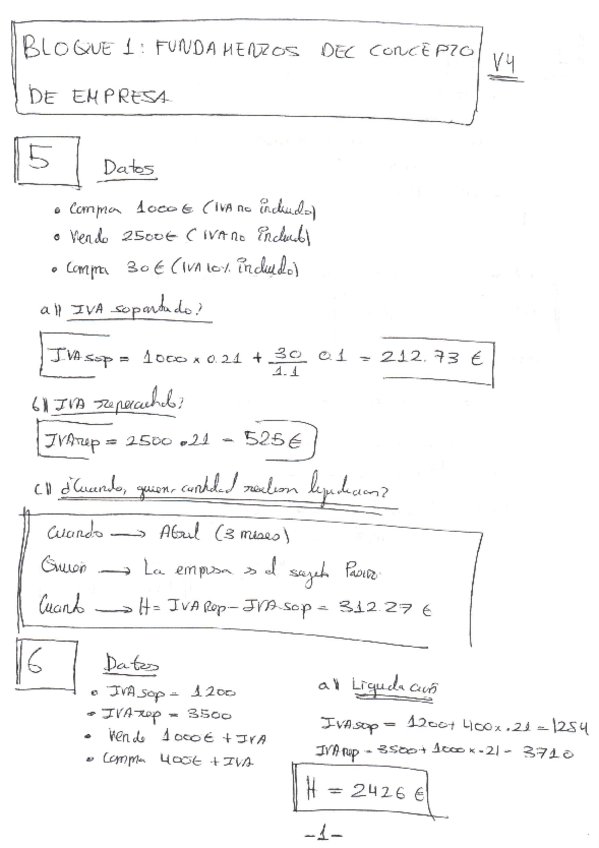 BLOQUE 1: FUNDAMENTOS DEL CONCEPTO
DE EMPRESA
V4
5 Datos
• Compra 1000€ (IVA no incluido)
• Vendo 2500€ (IVA no incluido)
• Compra 30€ (IVA 10% incluido)
a)) IVA soportado?
IVAsop = 1000 × 0.21 + 30/1.1 0.1 = 212.73 €
b)) IVA repercutido?
IVArep = 2500 .21 = 525€
c)) ¿Cuando, quien, cantidad realizan liquidacion?
Cuando → Abril (3 meses)
Quien → La empresa es el sujeto Pasivo.
Cuant → H = IVARep - IVAsop = 312.27 €
6 Datos
• IVAsop = 1200
• IVArep = 3500
• Vendo 1000€ + IVA
• Compra 400€ + IVA
a)) Liquidación
IVAsop = 1200 + 400 × .21 = 1284
IVArep = 3500 + 1000 × .21 = 3710
H = 2426 €
-1-